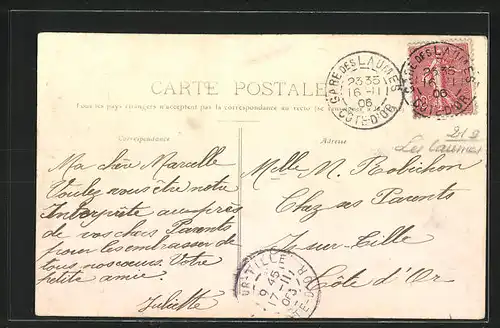 CARTE POSTALE
Tous les pays étrangers n'acceptent pas la correspondance au recto
Correspondance
Adresse
GARE DES LAUMES
23 35
16 -11
06
COTE-D'OR
GARE DES LAUMES
23 35
16 -11
06
COTE-D'OR
212
Les Laumes
Ma chère Marcelle
Voulez vous être notre
Interprète auprès
de vos chers Parents
pour les embrasser de
tous nos cœurs. Votre
petite amie.
Juliette
Melle M. Robichon
Chez ses Parents
Is-sur-Tille
Côte d'Or
IS-UR-TILLE
9 45
17 -11
06
COTE D'OR